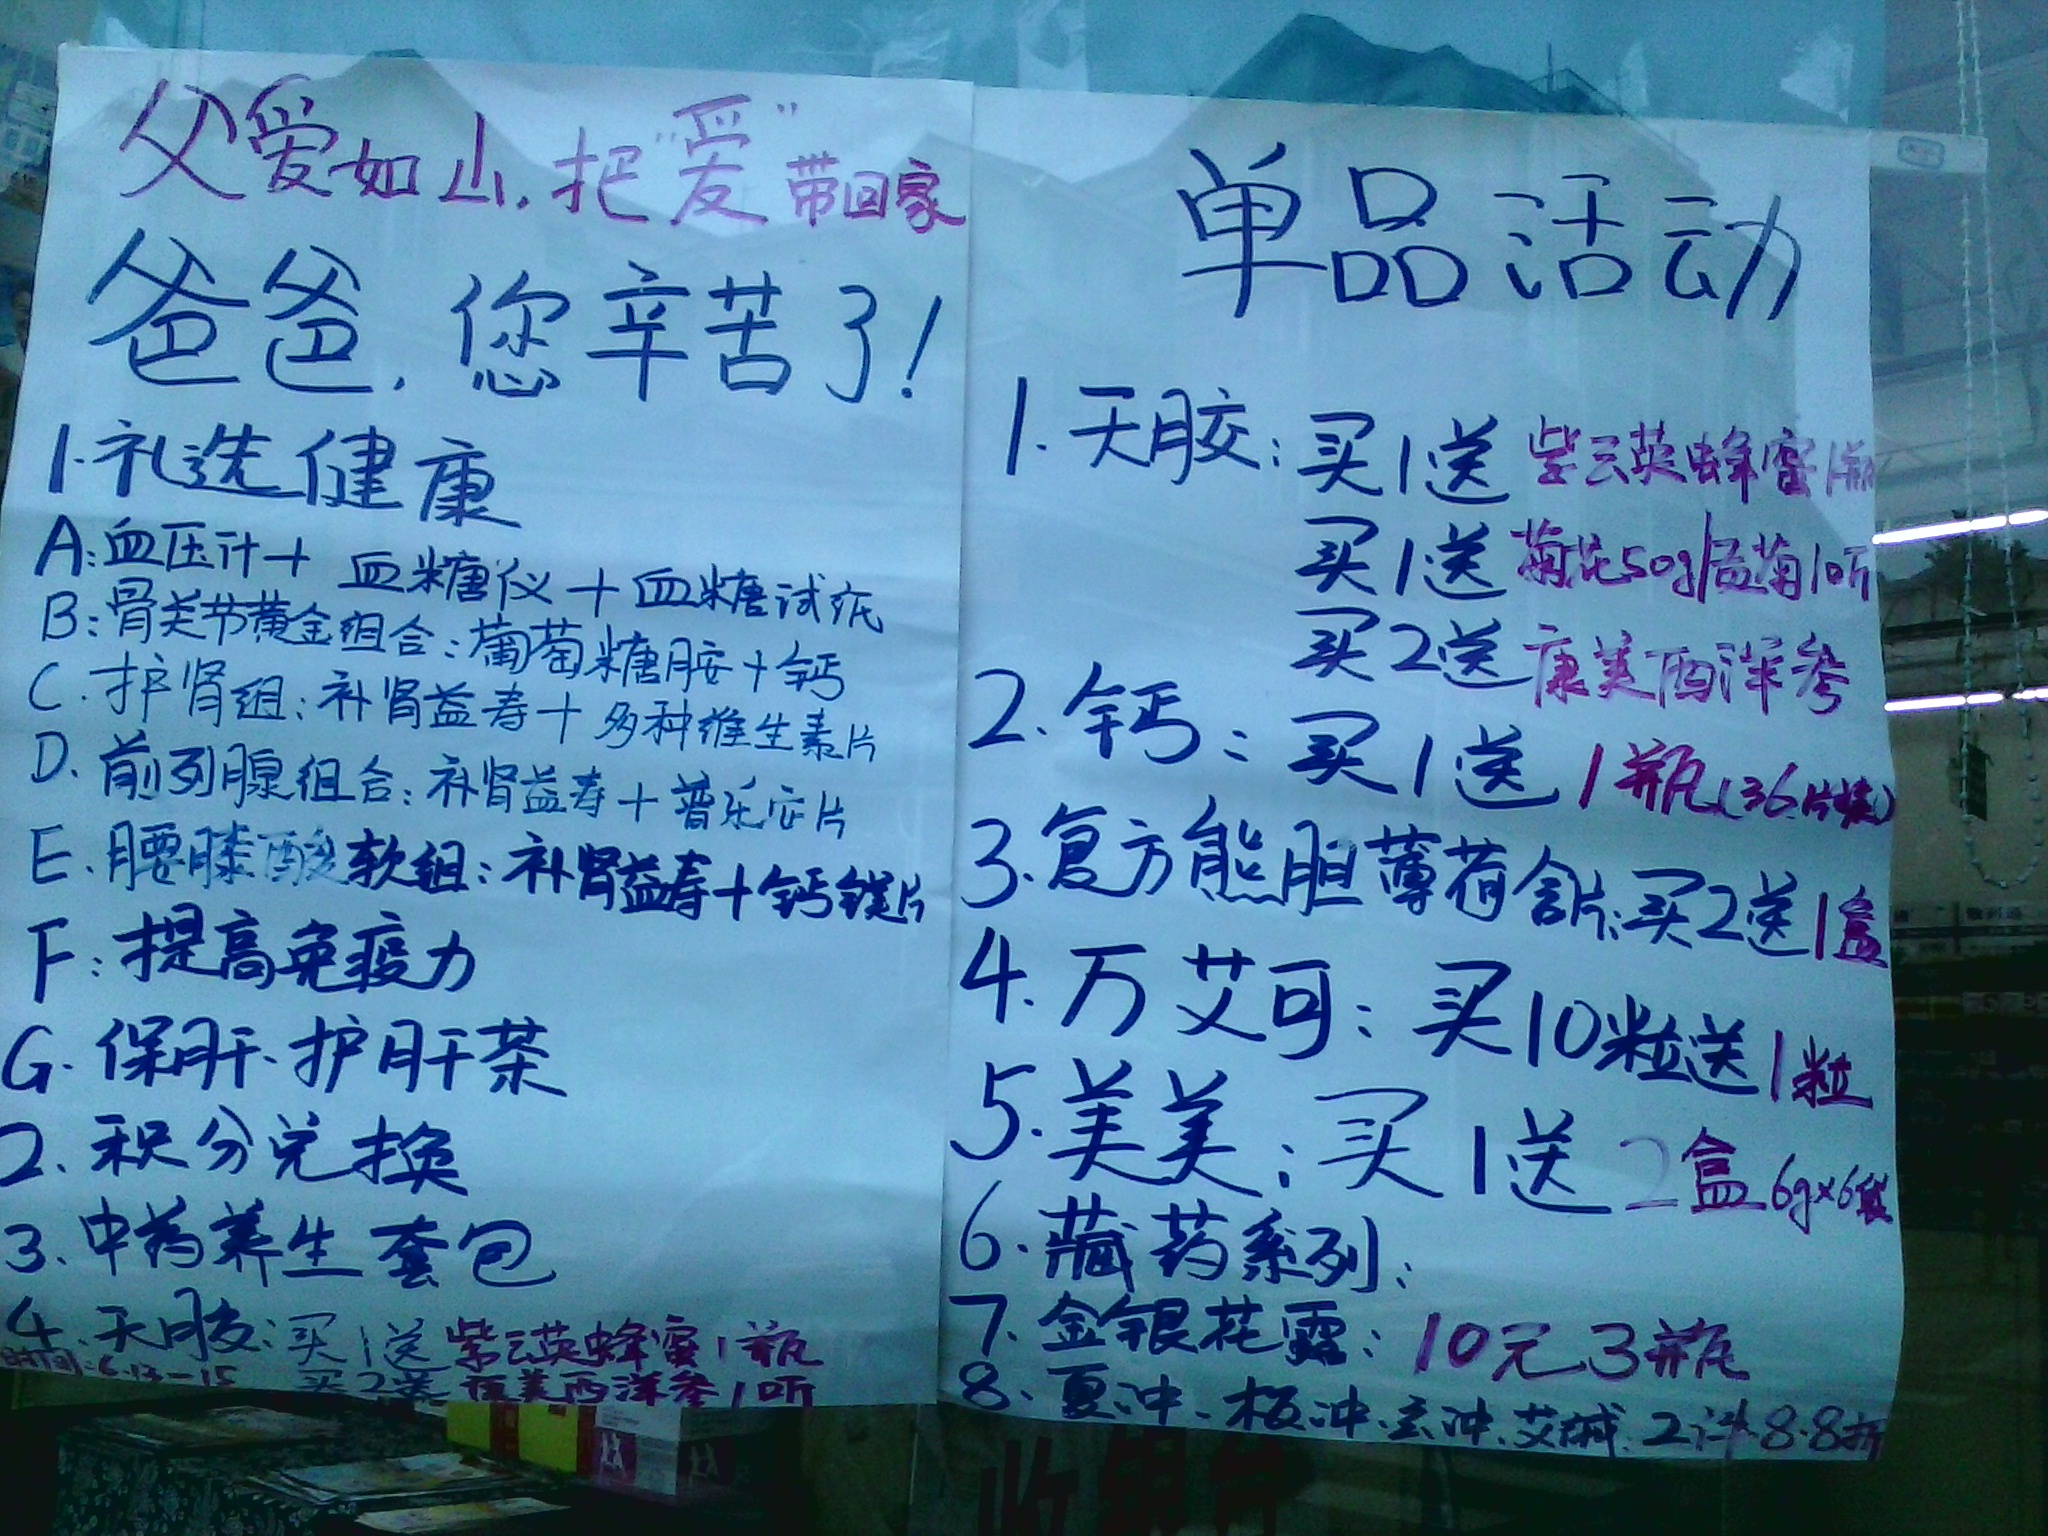 父爱如山,把"爱"带回家
爸爸,您辛苦了!
1.礼选健康
A:血压计+血糖仪+血糖试纸
B:骨关节黄金组合:葡萄糖胺+钙
C.护肾组:补肾益寿+多种维生素片
D.前列腺组合:补肾益寿+普乐安片
E.腰膝酸软组:补肾益寿+钙镁片
F:提高免疫力
G.保肝、护肝茶
2.积分兑换
3.中药养生套包
4.天胶:买1送紫云英蜂蜜1瓶
时间:6.13-15 买2送康美西洋参1听
单品活动
1.天胶:买1送紫云英蜂蜜1瓶
买1送菊花50g/贡菊1听
买2送康美西洋参
2.钙:买1送1瓶(36片装)
3.复方熊胆薄荷含片:买2送1盒
4.万艾可:买10粒送1粒
5.美美:买1送2盒6g×6袋
6.藏药系列:
7.金银花露:10元3瓶
8.夏冲、板冲、玄冲、艾碱.2件8.8折
收银台